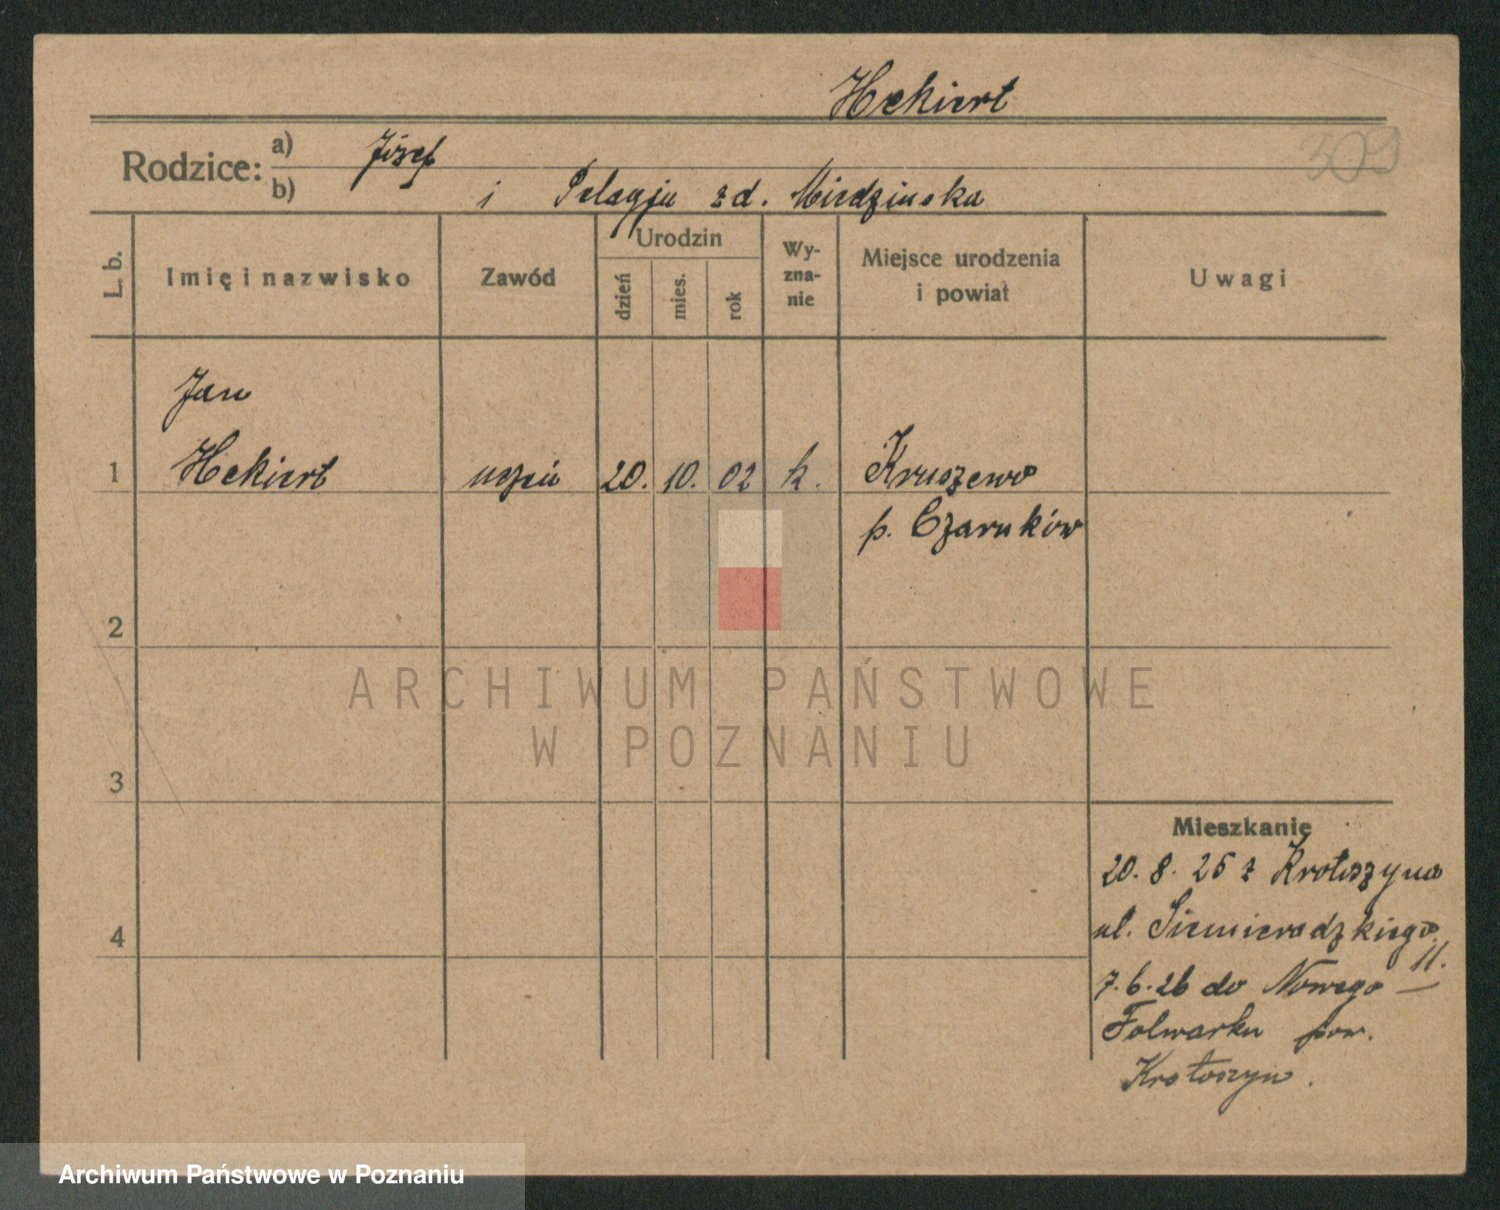 Hekiert
309
Rodzice: a) Józef
b) i Pelagja zd. Miedzińska
L. b.
Imię i nazwisko
Zawód
Urodzin
dzień
mies.
rok
Wy-
zna-
nie
Miejsce urodzenia
i powiat
Uwagi
Jan
1 Hekiert uczeń 20. 10. 02 k. Kruszewo
p. Czarnków
2
3
4
ARCHIWUM PAŃSTWOWE
W POZNANIU
Mieszkanie
20. 8. 25 z Krotoszyna
ul. Siemieradzkiego
11.
7. 6. 26 do Nowego
Folwarku pow.
Krotoszyn.
Archiwum Państwowe w Poznaniu